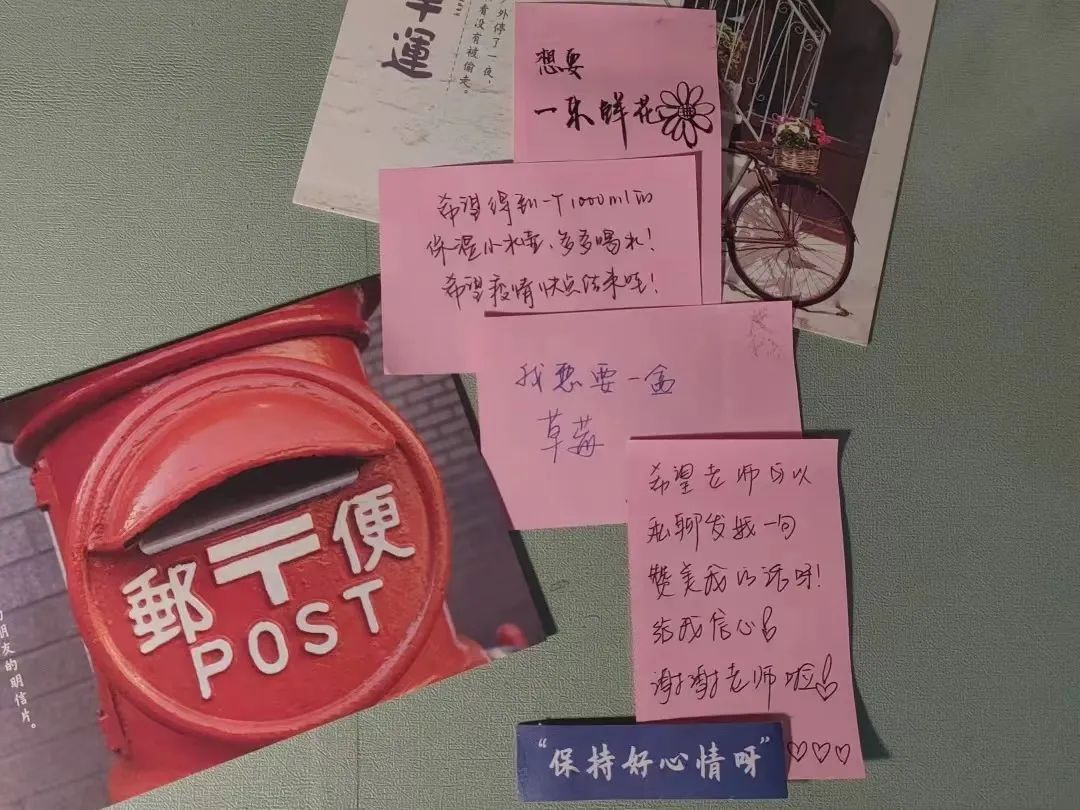 幸運
外停了一夜，
看没有被偷走。
想要
一束鲜花
希望得到一个1000ml的
保温小水壶，多多喝水！
希望疫情快点结束哇！
我想要一盒
草莓
希望老师可以
私聊发我一句
赞美我的话呀！
给我信心
谢谢老师啦！
“保持好心情呀”
郵〒便
POST
朋友的明信片。